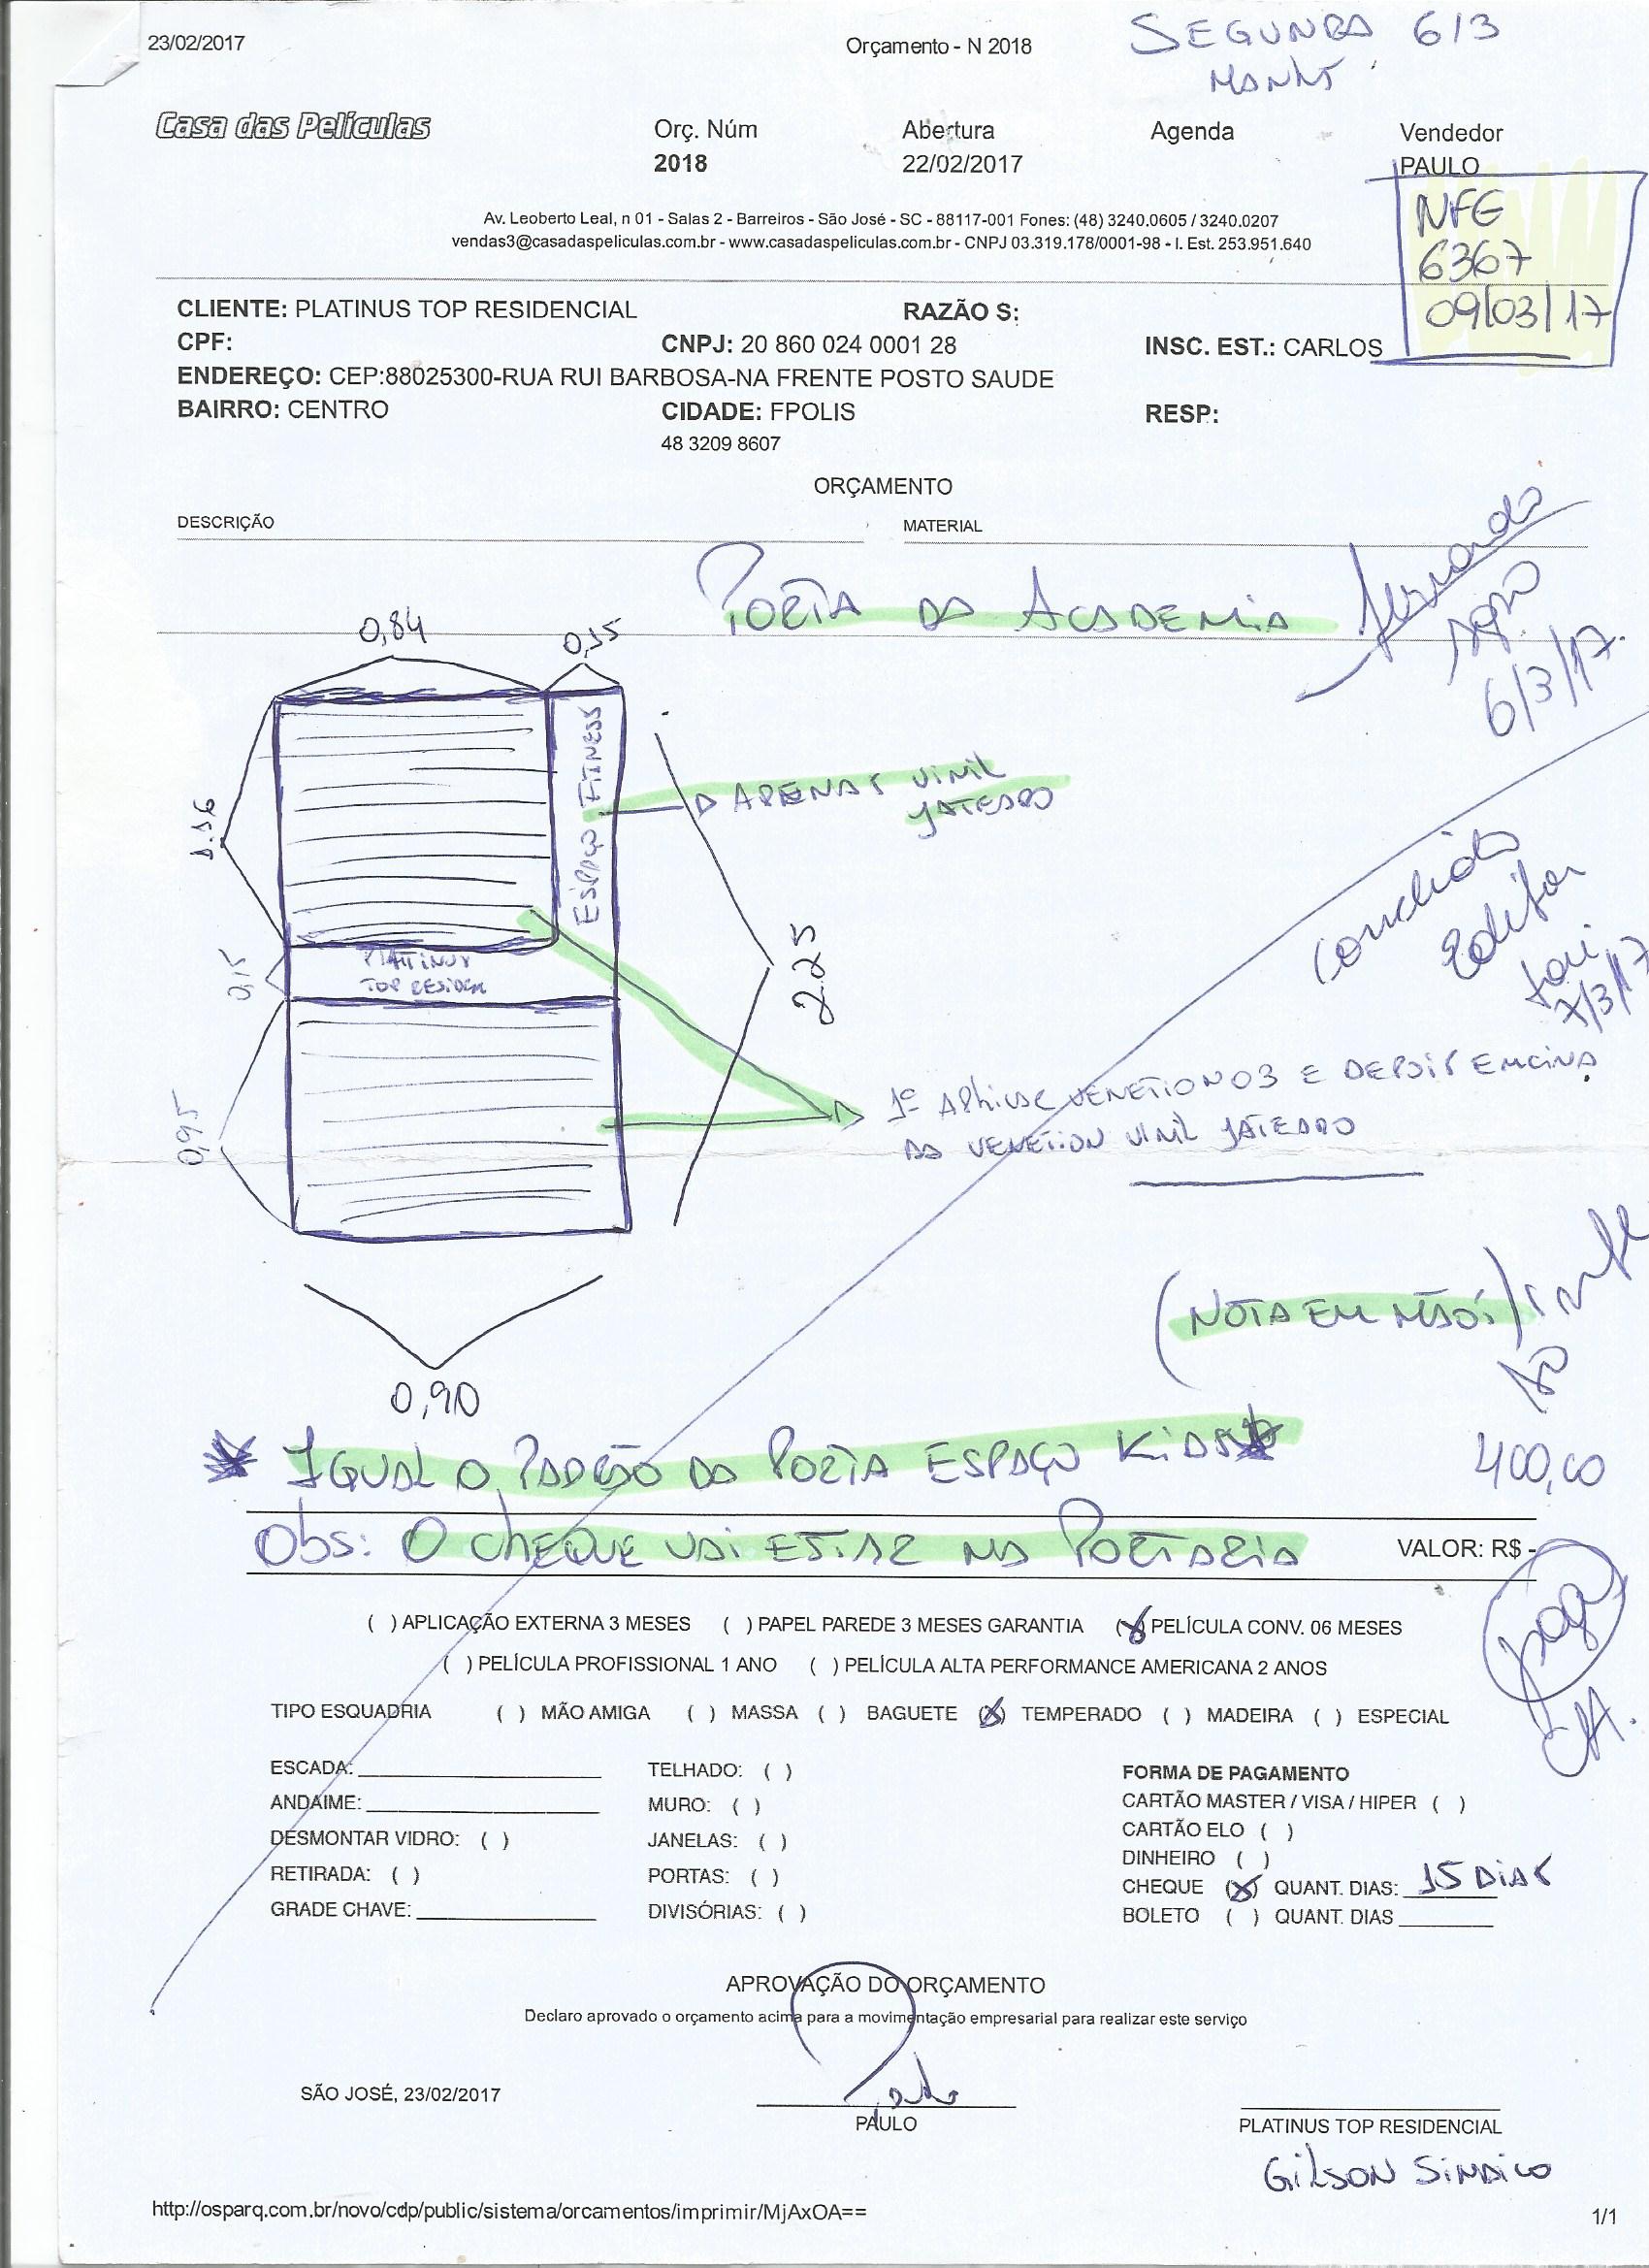 23/02/2017 Orçamento - N 2018
SEGUNDA 6/3
MANHÃ
Casa das Películas
Orç. Núm Abertura Agenda Vendedor
2018 22/02/2017 PAULO
NFE
6367
09/03/17
Av. Leoberto Leal, n 01 - Salas 2 - Barreiros - São José - SC - 88117-001 Fones: (48) 3240.0605 / 3240.0207
vendas3@casadaspeliculas.com.br - www.casadaspeliculas.com.br - CNPJ 03.319.178/0001-98 - I. Est. 253.951.640
CLIENTE: PLATINUS TOP RESIDENCIAL RAZÃO S:
CPF: CNPJ: 20 860 024 0001 28 INSC. EST.: CARLOS
ENDEREÇO: CEP:88025300-RUA RUI BARBOSA-NA FRENTE POSTO SAUDE
BAIRRO: CENTRO CIDADE: FPOLIS RESP:
48 3209 8607
ORÇAMENTO
DESCRIÇÃO MATERIAL
PORTA DA ACADEMIA
6/3/17.
0,84 0,15
ESPAÇO FITNESS
APENAS VINIL
JATEADO
1.16
PLATINUS
TOP RESIDEN
0,15
2.25
0,95
Concluído
7/3/17
1º APLICAR VENETION 03 E DEPOIS EMCIMA
DA VENETION VINIL JATEADO
(NOTA EM MÃOS)
0,90
IGUAL O PADRÃO DA PORTA ESPAÇO KIDS
400,00
Obs: O CHEQUE VAI ESTAR NA PORTARIA VALOR: R$ -
pago
( ) APLICAÇÃO EXTERNA 3 MESES ( ) PAPEL PAREDE 3 MESES GARANTIA (X) PELÍCULA CONV. 06 MESES
( ) PELÍCULA PROFISSIONAL 1 ANO ( ) PELÍCULA ALTA PERFORMANCE AMERICANA 2 ANOS
TIPO ESQUADRIA ( ) MÃO AMIGA ( ) MASSA ( ) BAGUETE (X) TEMPERADO ( ) MADEIRA ( ) ESPECIAL
CH.
ESCADA: TELHADO: ( ) FORMA DE PAGAMENTO
ANDAIME: MURO: ( ) CARTÃO MASTER / VISA / HIPER ( )
DESMONTAR VIDRO: ( ) JANELAS: ( ) CARTÃO ELO ( )
RETIRADA: ( ) PORTAS: ( ) DINHEIRO ( )
GRADE CHAVE: DIVISÓRIAS: ( ) CHEQUE (X) QUANT. DIAS: 15 DIAS
BOLETO ( ) QUANT. DIAS
APROVAÇÃO DO ORÇAMENTO
Declaro aprovado o orçamento acima para a movimentação empresarial para realizar este serviço
SÃO JOSÉ, 23/02/2017
PAULO
PLATINUS TOP RESIDENCIAL
GILSON SINDICO
http://osparq.com.br/novo/cdp/public/sistema/orcamentos/imprimir/MjAxOA== 1/1